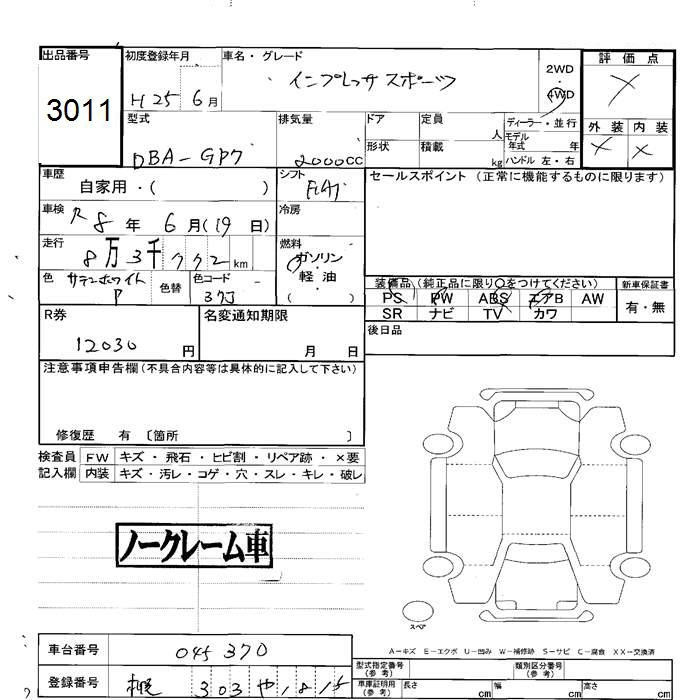 出品番号
3011
初度登録年月
H25 6月
車名・グレード
インプレッサ スポーツ
2WD
・
4WD
評価点
X
外装 内装
X X
型式
DBA-GP7
排気量
2000CC
ドア
定員
人
形状
積載
kg
ディーラー・並行
モデル
年式 年
ハンドル 左・右
車歴
自家用・( )
シフト
FAT
セールスポイント (正常に機能するものに限ります)
車検
R8年 6月(19日)
冷房
走行
8万3千772km
燃料
ガソリン
・
(軽油)
色
サテンホワイト
P
色替
色コード
37J
装備品 (純正品に限り〇をつけてください)
新車保証書
PS PW ABS エアB AW
SR ナビ TV カワ
有・無
R券
12030円
名変通知期限
月 日
後日品
注意事項申告欄 (不具合内容等は具体的に記入して下さい)
修復歴 有 〔箇所 〕
検査員
記入欄
FW キズ・飛石・ヒビ割・リペア跡・×要
内装 キズ・汚レ・コゲ・穴・スレ・キレ・破レ
ノークレーム車
スペア
A-キズ E-エクボ U-凹み W-補修跡 S-サビ C-腐食 XX-交換済
車台番号
045370
登録番号
303 や 1815
型式指定番号
(参考)
類別区分番号
(参考)
車庫証明用
(参考)
長さ cm 幅 cm 高さ cm